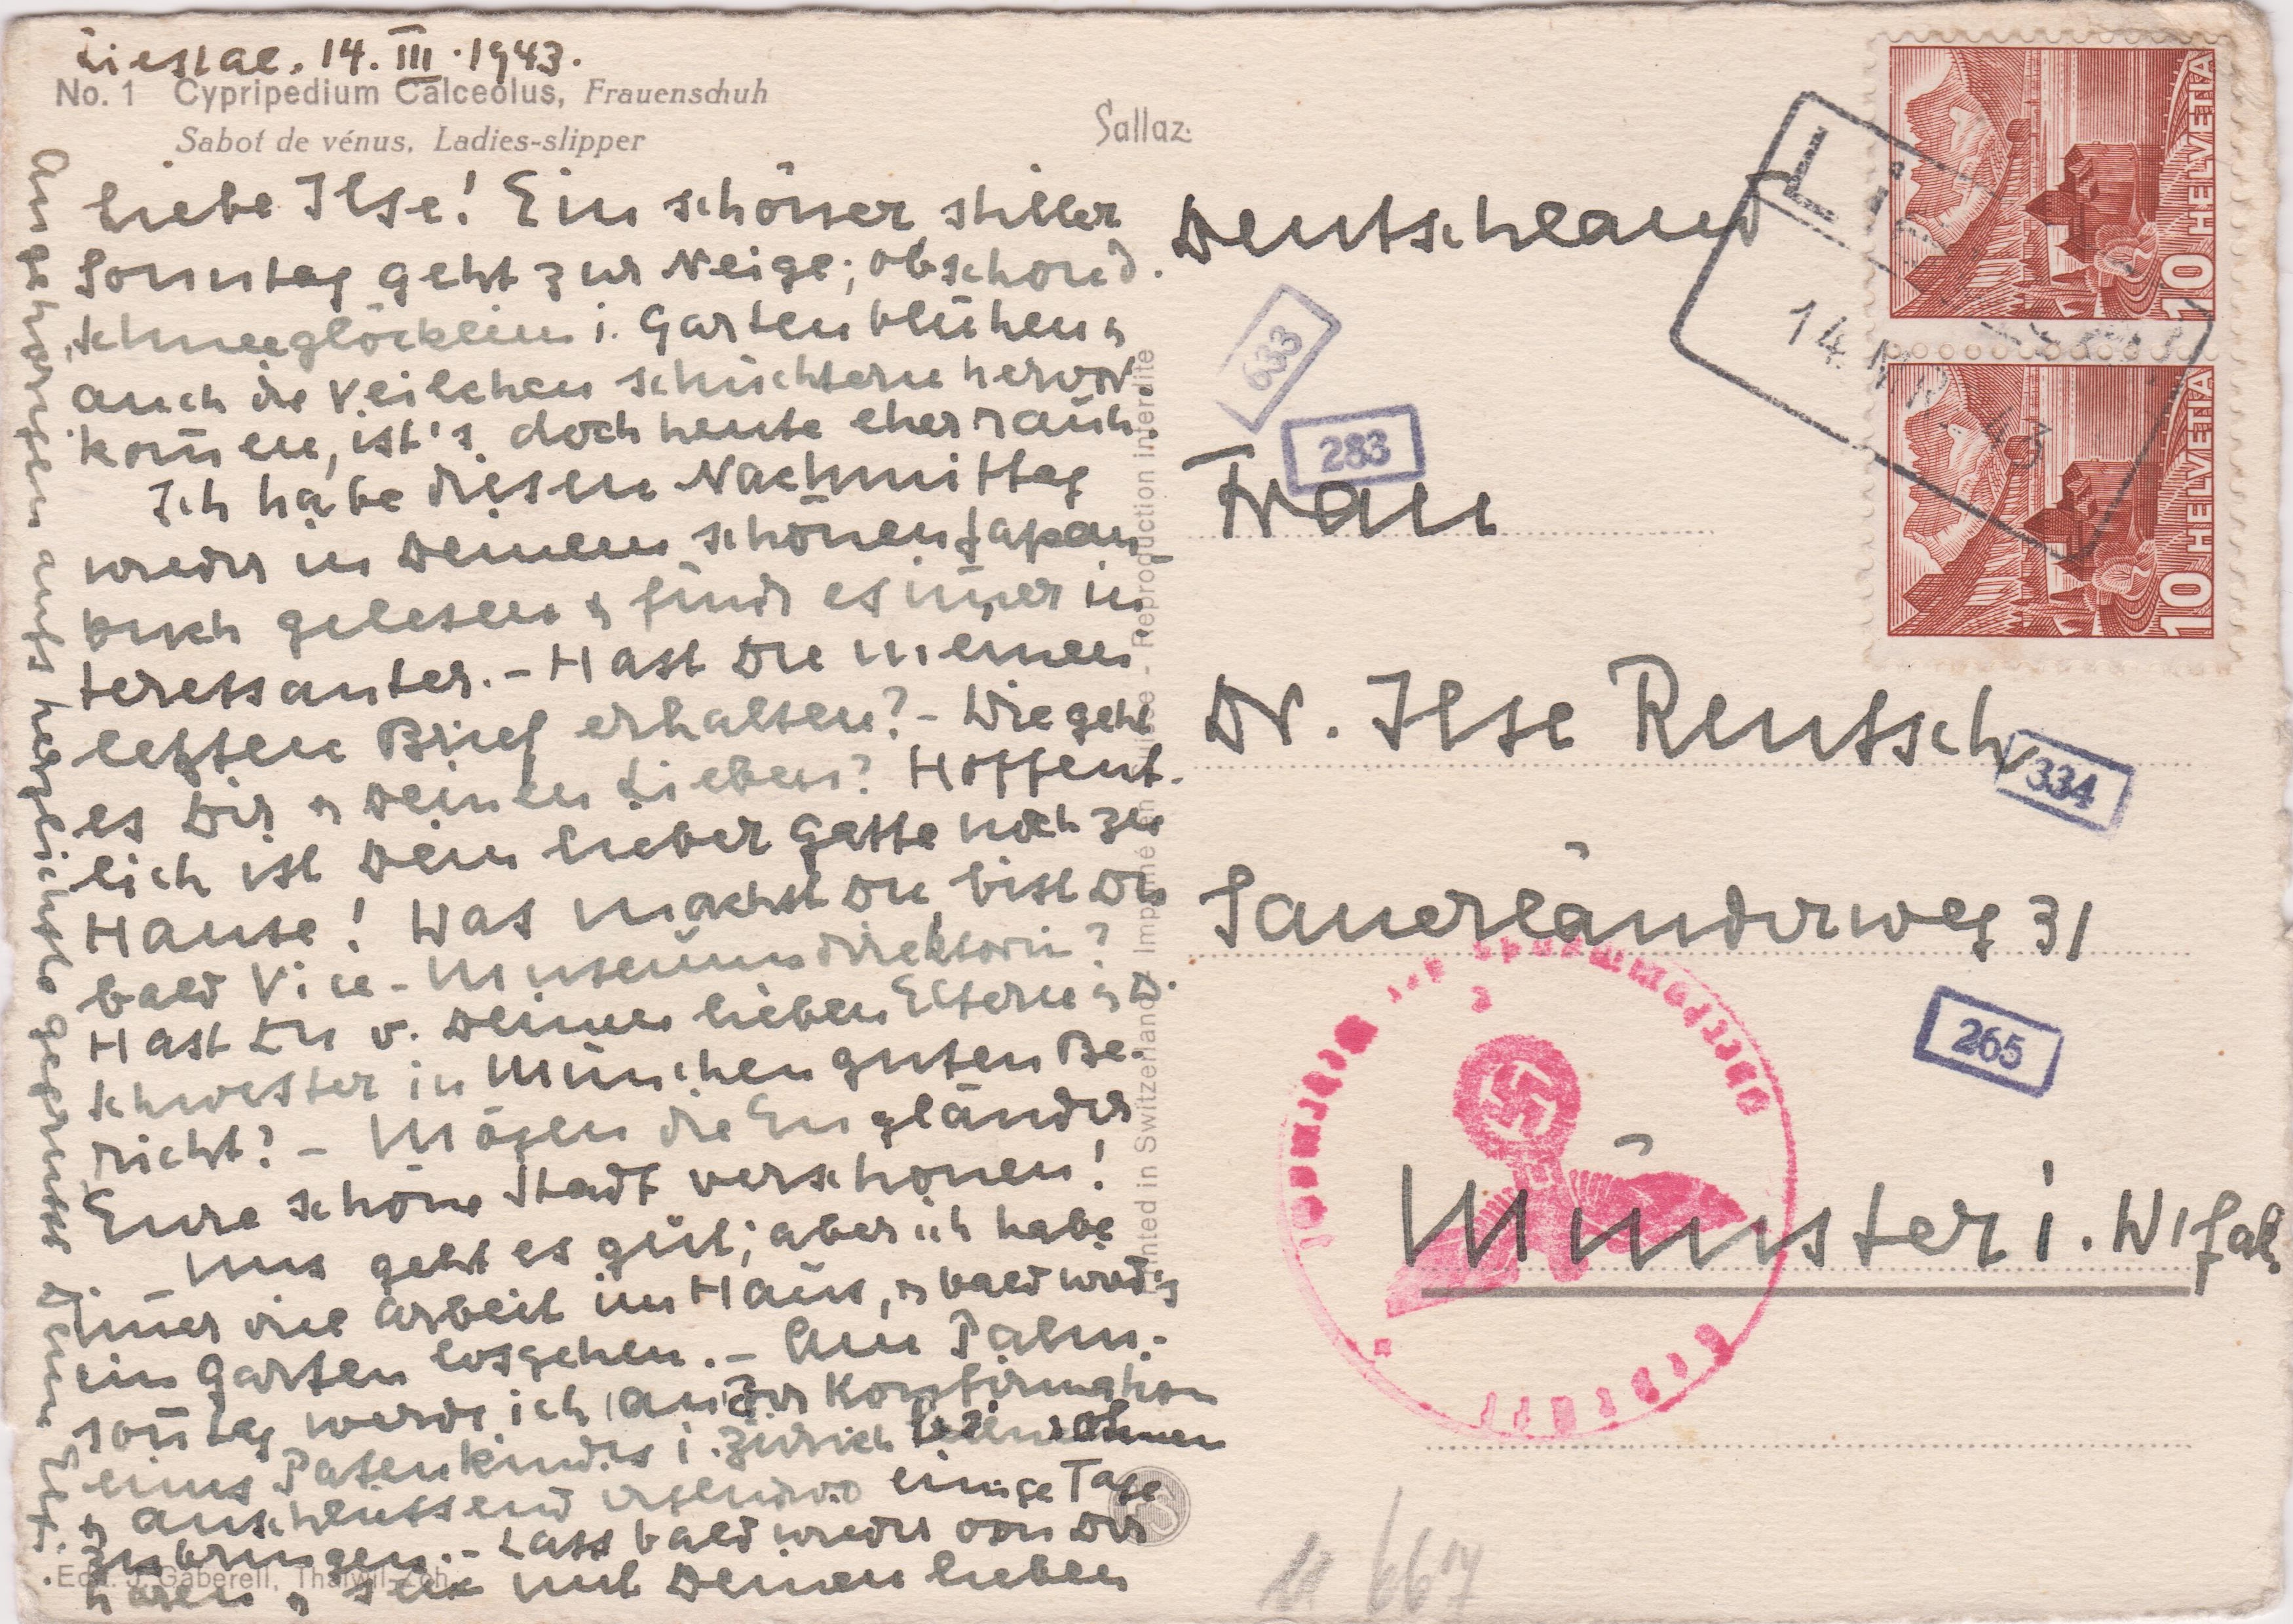 Liestal. 14. III. 1943.
No. 1 Cypripedium Calceolus, Frauenschuh
Sabot de vénus, Ladies-slipper
Sallaz
Liebe Ilse! Ein schöner stiller
Sonntag geht zur Neige; obschon d.
Schneeglöcklein i. Garten blühen &
auch die Veilchen schüchtern hervor
kom̄en, ist's doch heute eher rauh.
Ich habe diesen Nachmittag
wieder in Deinem schönen Japan-
buch gelesen & finde es im̄er in
teressanter. – Hast Du meinen
letzten Brief erhalten? – Wie geht
es Dir & Deinen Lieben? Hoffent-
lich ist Dein lieber Gatte noch zu
Hause! Was machst Du, bist Du
bald Vice-Museumsdirektorin?
Hast Du v. Deinen lieben Eltern & D.
Schwester in München guten Be-
richt? – Mögen die Engländer
Eure schöne Stadt verschonen!
Uns geht es gut; aber ich habe
im̄er viel Arbeit im Haus, & bald wird's
im Garten losgehen. – Am Palm-
son̄tag werde ich an der Konfirmation
eines Patenkindes i. Zürich
& anschliessend irgendwo einige Tage
zubringen. – Lass bald wieder von Dir
hören & sei mit Deinen lieben
Angehörigen aufs herzlichste gegrüsst D.
Printed in Switzerland - Imprimé en Suisse - Reproduction interdite
Edit. J. Gaberell, Thalwil-Zch.
Deutschland
Frau
Dr. Ilse Rentsch
Sauerländerweg 31
Münster i. Wfal.
10 HELVETIA
10 HELVETIA
14. III. 43
633
283
334
265
667